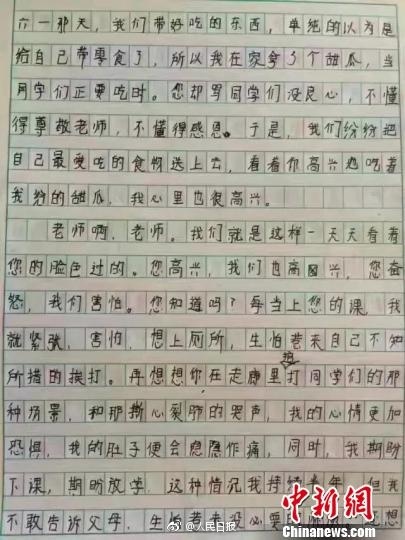 六一那天，我们带好吃的东西，单纯的以为是
给自己带零食了，所以我在家拿了个甜瓜，当
同学们正要吃时。您却骂同学们没良心，不懂
得尊敬老师，不懂得感恩。于是，我们纷纷把
自己最爱吃的食物送上去，看着你高兴地吃着
我给的甜瓜，我心里也很高兴。
老师啊，老师。我们就是这样一天天看着
您的脸色过的。您高兴，我们也高兴，您奋
怒，我们害怕。您知道吗？每当上您的课，我
就紧张，害怕，想上厕所，生怕惹来自己不知
所措的挨打。再想想你在走廊里打同学们的那
种场景，和那撕心裂肺的哭声，我的心情更加
恐惧，我的肚子便会隐隐作痛，同时，我期盼
下课，期盼放学。这种情况我持续半年，但我
不敢告诉父母，生怕惹来没必要
想
@人民日报
中新网
www.chinanews.com